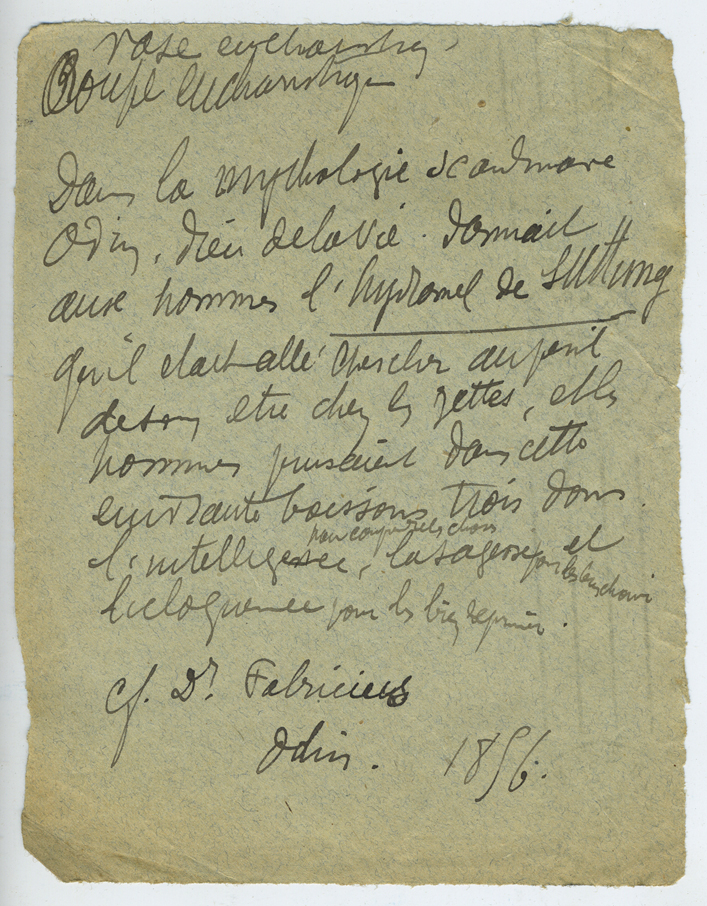 vase eucharistiq
Coupe eucharistique
Dans la mythologie scandinave
Odin, dieu de la vie. Donnait
aux hommes l'hydromel de Suttung
qu'il etait allé chercher au peril
de son etre chez les , et les
hommes puisaient dans cette
enivrante boissons trois dons.
pour comprendre les choses
l'intelligence, la sagesse et
pour les bien choisir
l'eloquence pour les bien exprimer.
cf. Dr. Fabricius
Odin. 1856.